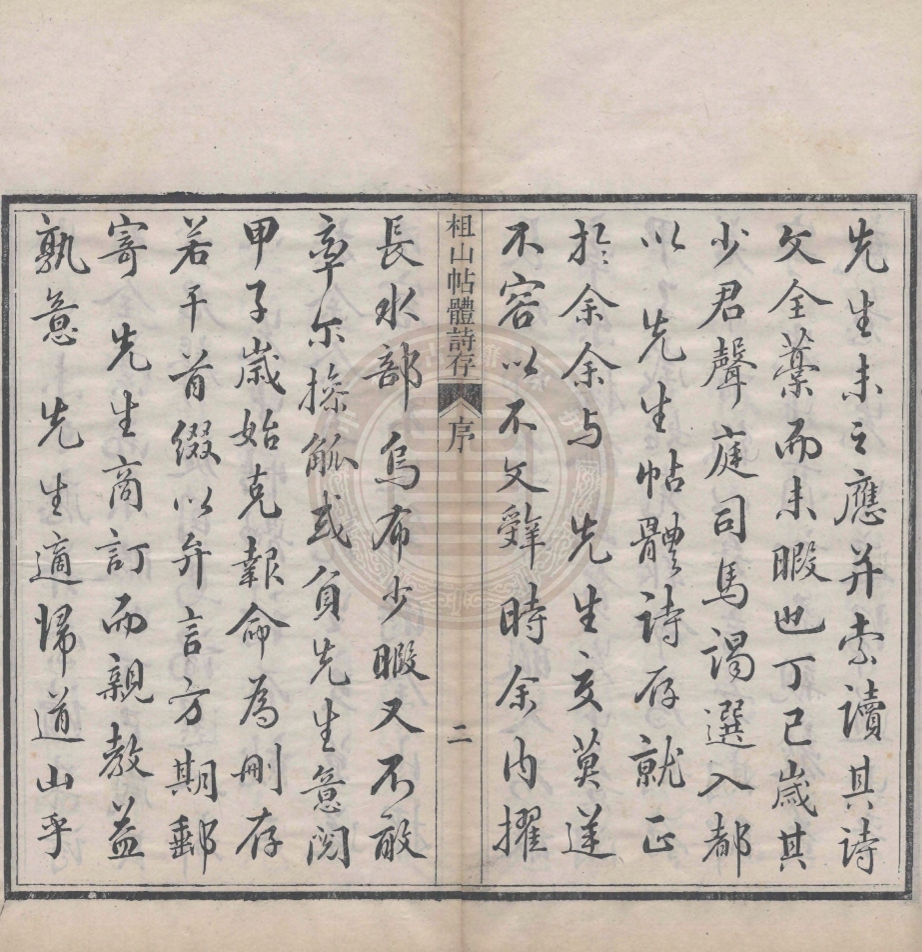 先生未之應并索讀其詩
文全藁而未暇也丁巳歲其
少君聲庭司馬謁選入都
以先生帖體詩存就正
於余余与先生交莫逆
不容以不文辭時余內擢
柤山帖體詩存
序
二
長水部烏布少暇又不敢
率尔操觚或負先生意閱
甲子歲始克報命為刪存
若干首綴以弁言方期郵
寄先生商訂而親教益
孰意先生適歸道山乎